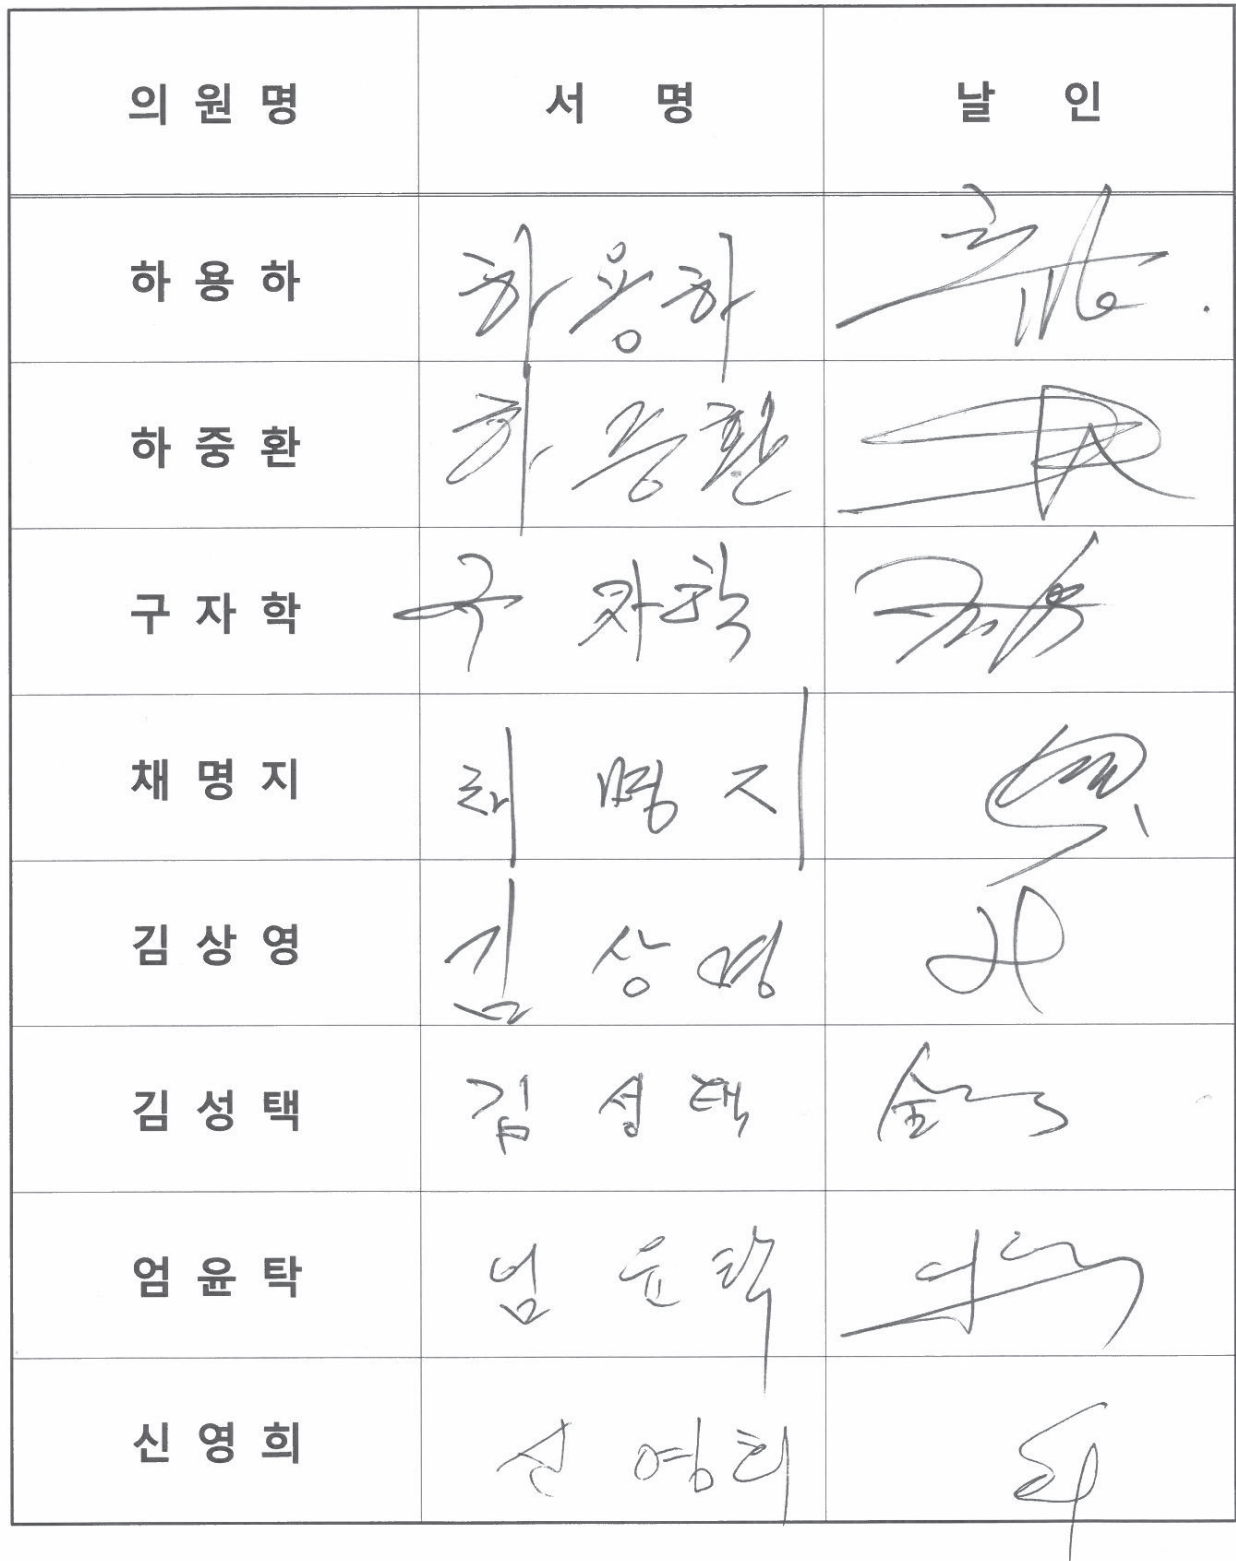 의 원 명 서 명 날 인
하 용 하 하용하
하 중 환 하중환
구 자 학 구 자학
채 명 지 채 명 지
김 상 영 김 상 영
김 성 택 김 성 택
엄 윤 탁 엄 윤 탁
신 영 희 신 영희